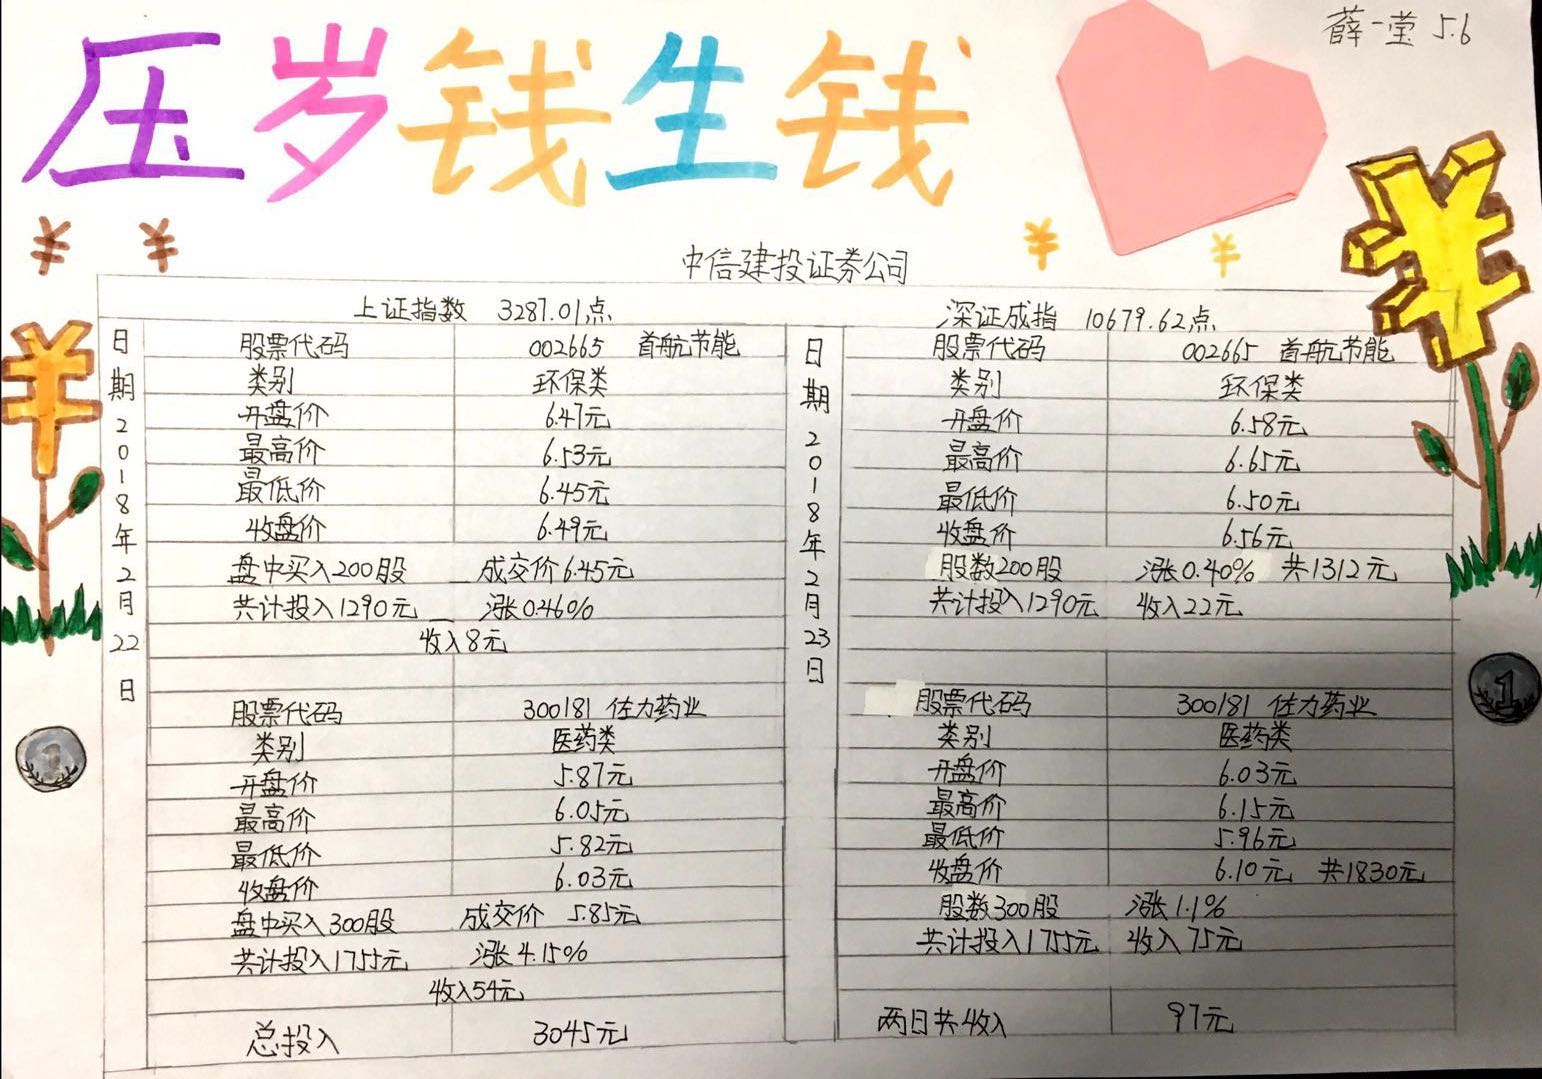 薛一莹 5.6
压岁钱生钱
中信建投证券公司
上证指数 3287.01点
深证成指 10679.62点
日期2018年2月22日
股票代码 002665 首航节能
类别 环保类
开盘价 6.47元
最高价 6.53元
最低价 6.45元
收盘价 6.49元
盘中买入200股 成交价6.45元
共计投入1290元 涨0.46%
收入8元
股票代码 300181 佐力药业
类别 医药类
开盘价 5.87元
最高价 6.05元
最低价 5.82元
收盘价 6.03元
盘中买入300股 成交价 5.85元
共计投入1755元 涨4.15%
收入54元
总投入 3045元
日期2018年2月23日
股票代码 002665 首航节能
类别 环保类
开盘价 6.58元
最高价 6.65元
最低价 6.50元
收盘价 6.56元
股数200股 涨0.40% 共1312元
共计投入1290元 收入22元
股票代码 300181 佐力药业
类别 医药类
开盘价 6.03元
最高价 6.15元
最低价 5.96元
收盘价 6.10元 共1830元
股数300股 涨1.1%
共计投入1755元 收入75元
两日共收入 97元
¥
¥
¥
¥
¥
¥
1
1